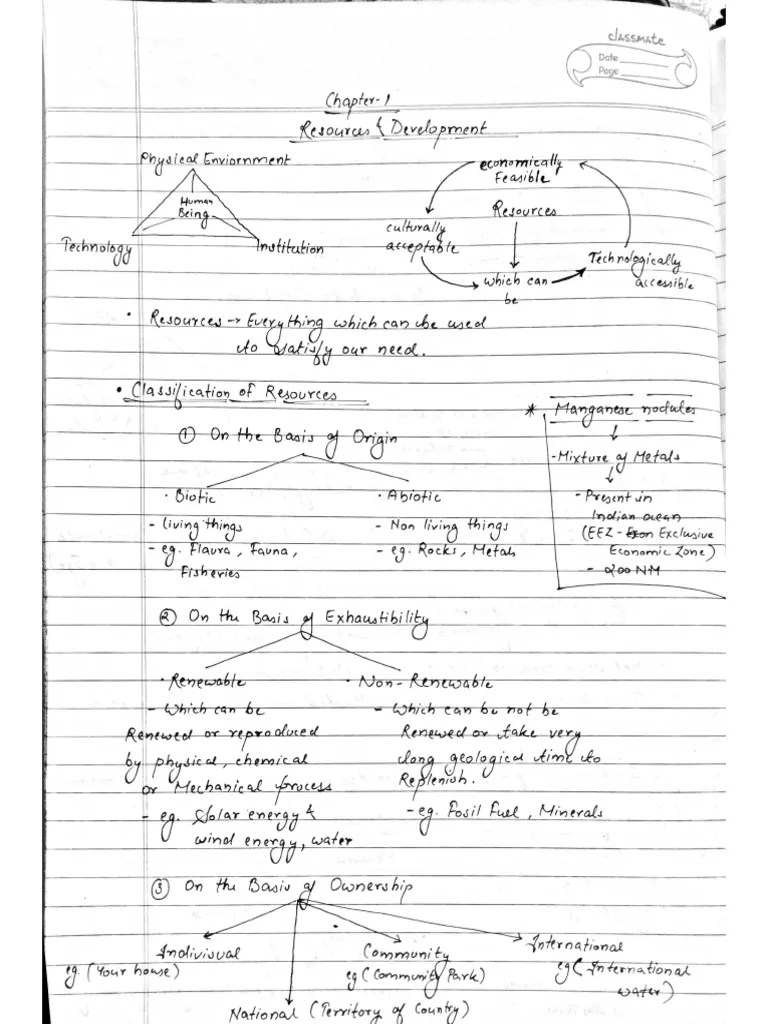 classmate
Date
Page
Chapter-1
Resources & Development
Physical Enviornment
Human
Being
Technology
Institution
economically
Feasible
Resources
culturally
acceptable
which can
be
Technologically
accessible
• Resources → Everything which can be used
to satisfy our need.
• Classification of Resources
① On the Basis of Origin
• Biotic
- living things
- eg. Flaura, Fauna,
Fisheries
• Abiotic
- Non living things
- eg. Rocks, Metals
* Manganese nodules
↓
- Mixture of Metals
↓
- Present in
Indian ocean
(EEZ - Exclusive
Economic Zone)
- 200 NM
② On the Basis of Exhaustibility
• Renewable
- Which can be
Renewed or reproduced
by physical, chemical
or Mechanical process
- eg. Solar energy &
wind energy, water
• Non-Renewable
- Which can be not be
Renewed or take very
long geological time to
Replenish.
- eg. Fosil Fuel, Minerals
③ On the Basis of Ownership
Indivisual
eg. (Your house)
National (Territory of Country)
Community
eg (Community Park)
International
eg (International
water)